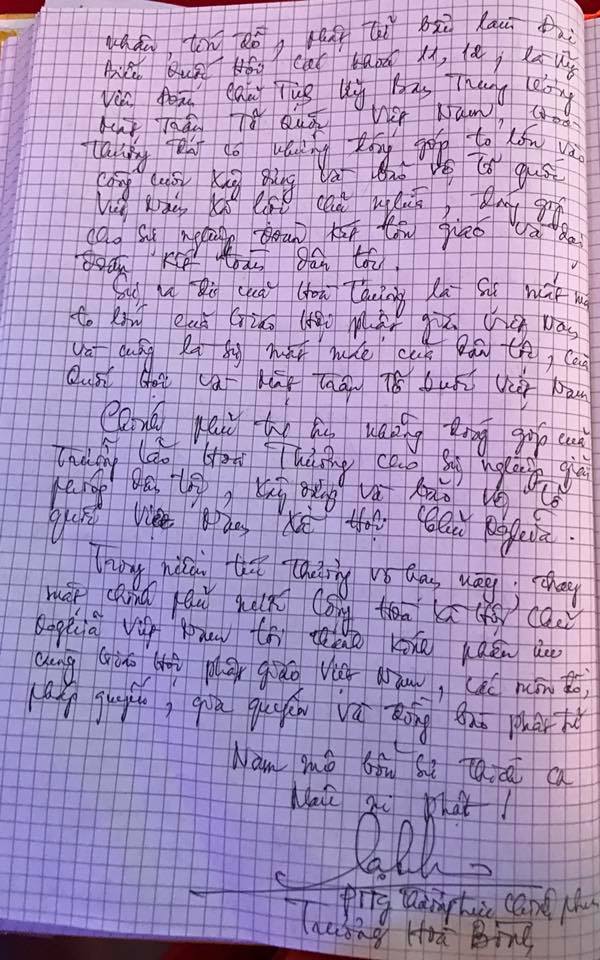 nhân, tín đồ, phật tử bầu làm Đại
biểu Quốc Hội các khoá 11, 12, là Uỷ
Viên Đoàn Chủ Tịch Uỷ Ban Trung Ương
Mặt Trận Tổ Quốc Việt Nam, Hoà
Thượng đã có những đóng góp to lớn vào
công cuộc xây dựng và bảo vệ tổ quốc
Việt Nam xã hội chủ nghĩa, đóng góp
cho sự nghiệp đoàn kết tôn giáo và đại
đoàn kết toàn dân tộc.
Sự ra đi của Hoà Thượng là sự mất mát
to lớn của Giáo Hội phật giáo Việt Nam
và cũng là sự mất mát của dân tộc, của
Quốc Hội và Mặt Trận Tổ Quốc Việt Nam
Chính phủ tri ân những đóng góp của
Trưởng lão Hoà Thượng cho sự nghiệp giải
phóng dân tộc, xây dựng và bảo vệ Tổ
quốc Việt Nam Xã Hội Chủ Nghĩa.
Trong niềm tiếc thương vô hạn này, thay
mặt chính phủ nước Cộng Hoà Xã Hội Chủ
Nghĩa Việt Nam tôi thành kính phân ưu
cùng Giáo Hội phật giáo Việt Nam, các môn đồ,
pháp quyến, gia quyến và đồng bào phật tử
Nam mô bổn sư thích ca
Mâu ni phật!
PTTg Thường trực Chính phủ
Trương Hoà Bình